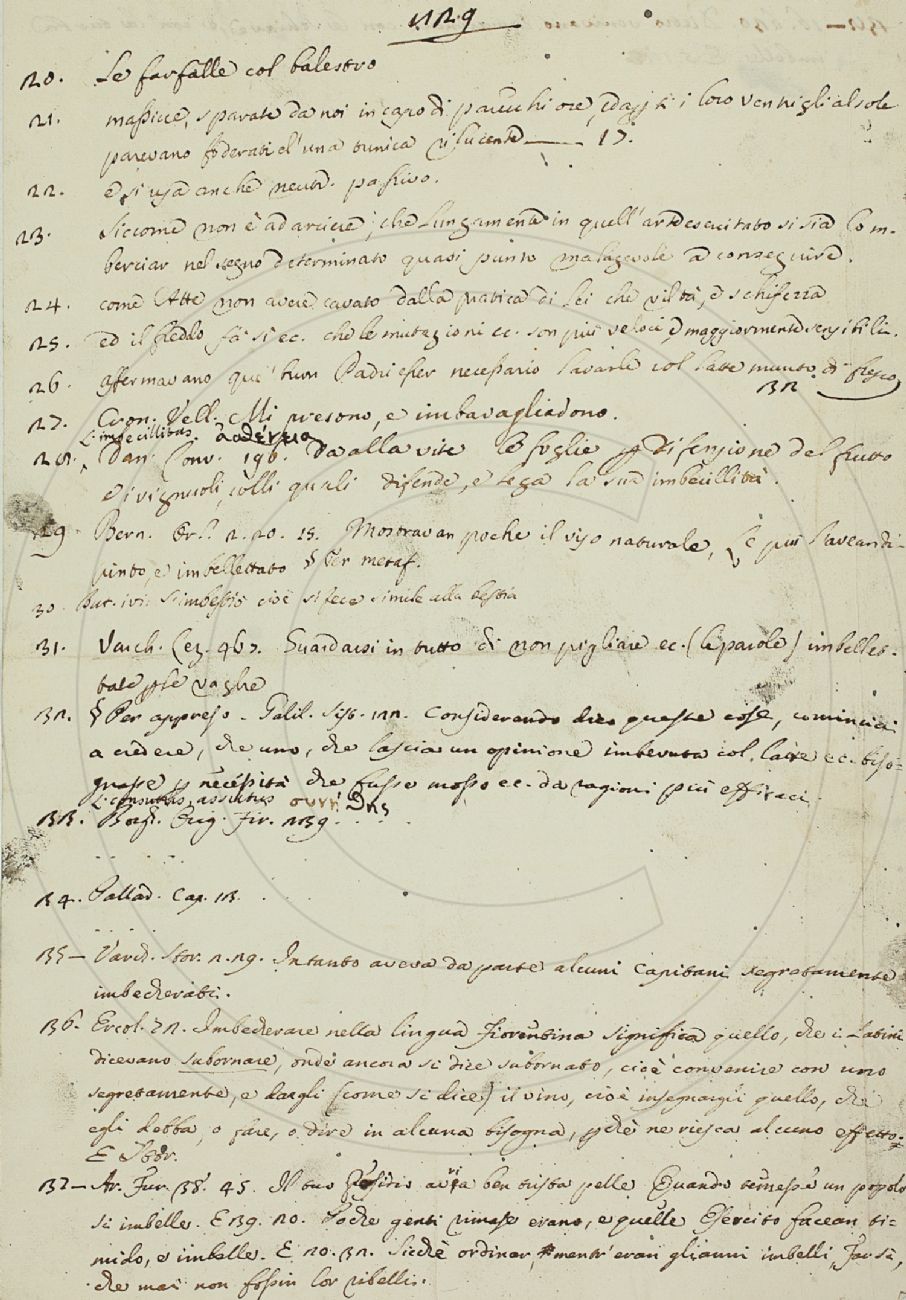 1129
20. Le farfalle col balestro
21. massicce, sparate da noi in capo di parecchi ore, i loro ventrigli al sole
parevano foderati d'una tunica rilucente —— 17.
22. e si usa anche neutr. passivo.
23. Siccome non è ad arciere, che lungamente in quell'arte esercitato si sia Com-
berciar nel segno determinato quasi punto malagevole a conseguire.
24. come Atte non avere cavato dalla pratica di lei che viltà, e schifezza
25. ed il freddo fa sì ec. che le mutazioni ec. son più veloci, e maggiormente sensibili.
26. affermavano que' buon Padri esser necessario lavarle col latte munto di fresco
32
27. Cron. Vell. Mi presono, e imbavagliadono.
L. imbecillitas.
28. Dan. Conv. 196. Da alla vite le foglie per difensione del frutto
e i vignuoli, colli quali difende, e lega la sua imbecillità.
29 Bern. Orl. 2. 20. 15. Mostravan poche il viso naturale, Se più l'avean di-
pinto, e imbellettato § Per metaf.
30. But. ivi: S'imbestiò cioè si fece simile alla bestia
31. Varch. Lez. 467. Guardarsi in tutto di non pigliare ec. (le parole) imbellet-
tate per le vaghe
32. § Per appreso. Galil. Sist. 122. Considerando dico queste cose, cominciai
a credere, che uno, che lascia un opinione imbevuta col latte ec. biso-
gnasse per necessità che fusse mosso ec. da ragioni più efficaci.
33. Borgh. Orig. Fir. 239. . . .
34. Pallad. Cap. 13.
35 — Varch. Stor. 2. 29. Intanto aveva da parte alcuni Capitani segretamente
imbecherati.
36. Ercol. 72. Imbecherare nella lingua fiorentina significa quello, che i Latini
dicevano subornare, onde ancora si dice subornato, cioè convenire con uno
segretamente, e dargli (come si dice) il vino, cioè insegnargli quello, che
egli debba, o fare, o dire in alcuna bisogna, perchè ne riesca alcuno effetto.
37 — Ar. Fur. 38. 45. Il tuo Esercito avria ben trista pelle Quando temesse un popolo
sì imbelle. E 39. 20. Poche genti rimase erano, e quelle Esercito facean ti-
mido, e imbelle. E 20. 32. Sicchè ordinar, mentr'eran gli anni imbelli, Far sì,
che mai non fossin lor ribelli.